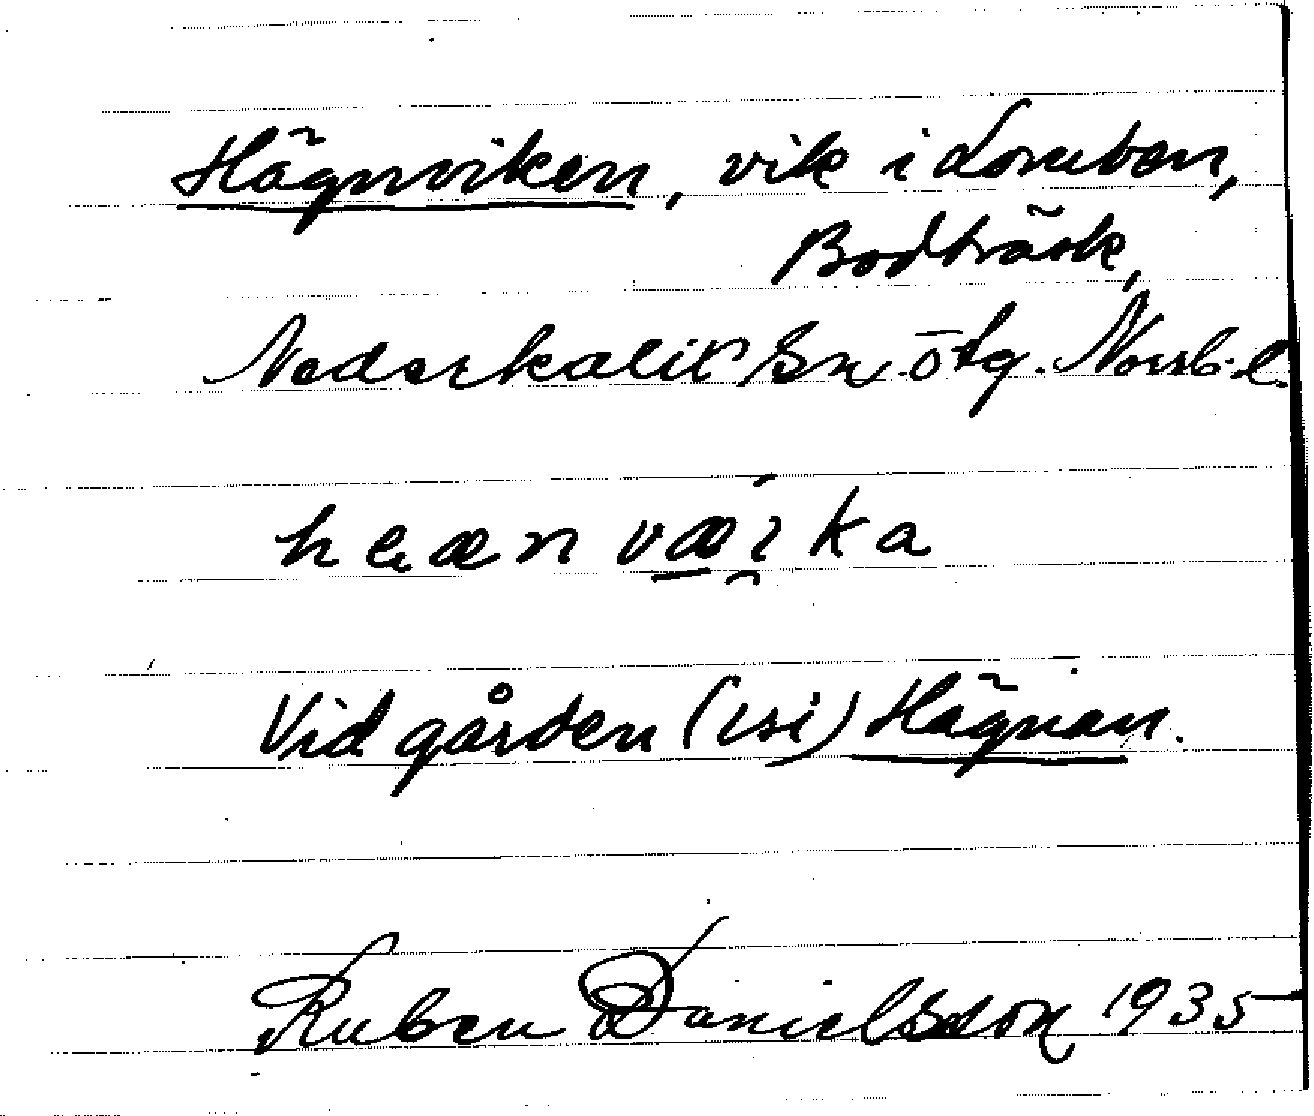 Hägnviken, vik i Lomben,
Bodträsk,
Nederkalix sn. ötg. Norrb. l.
heæn væi̯ka
Vid gården (isi) Hägnan.
Ruben Danielsson 1935